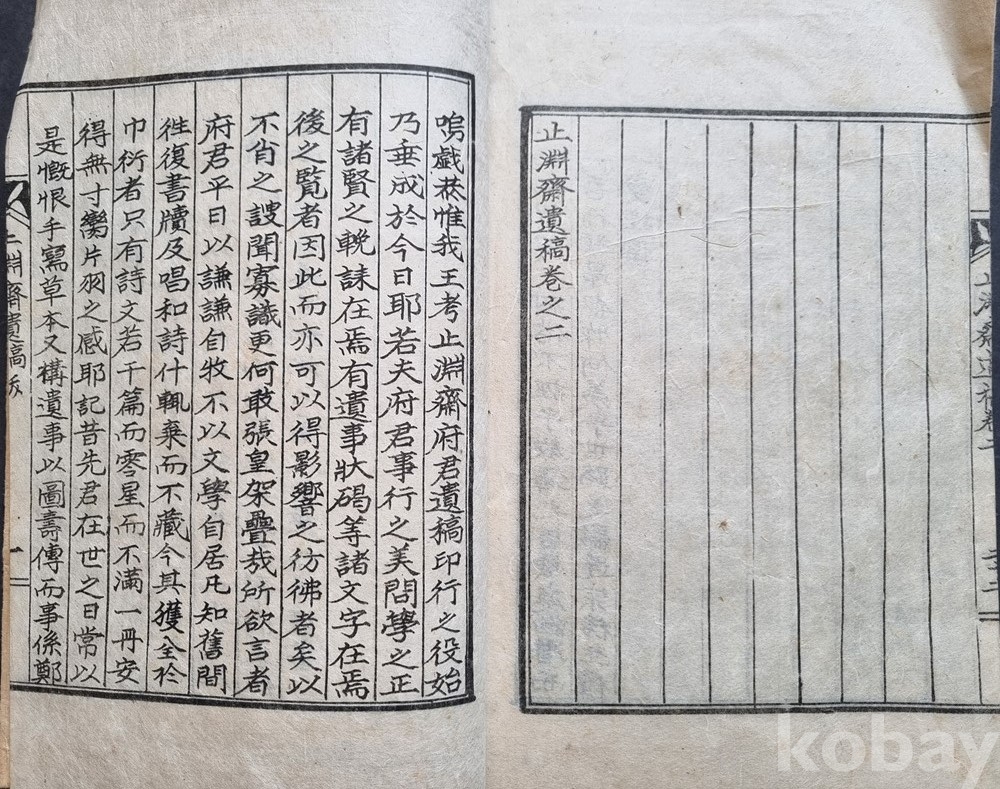 止淵齋遺稿卷之二
嗚戱恭惟我王考止淵齋府君遺稿印行之役始
乃垂成於今日耶若夫府君事行之美問學之正
有諸賢之輓誄在焉有遺事狀碣等諸文字在焉
後之覽者因此而亦可以得影響之彷彿者矣以
不肖之謏聞寡識更何敢張皇架疊哉所欲言者
府君平日以謙謙自牧不以文學自居凡知舊間
徃復書牘及唱和詩什輒棄而不藏今其獲全於
巾衍者只有詩文若干篇而零星而不滿一冊安
得無寸臠片羽之感耶記昔先君在世之日常以
是慨恨手寫草本又構遺事以圖壽傳而事係鄭
止淵齋遺稿卷二
止淵齋遺稿跋
一
kobay